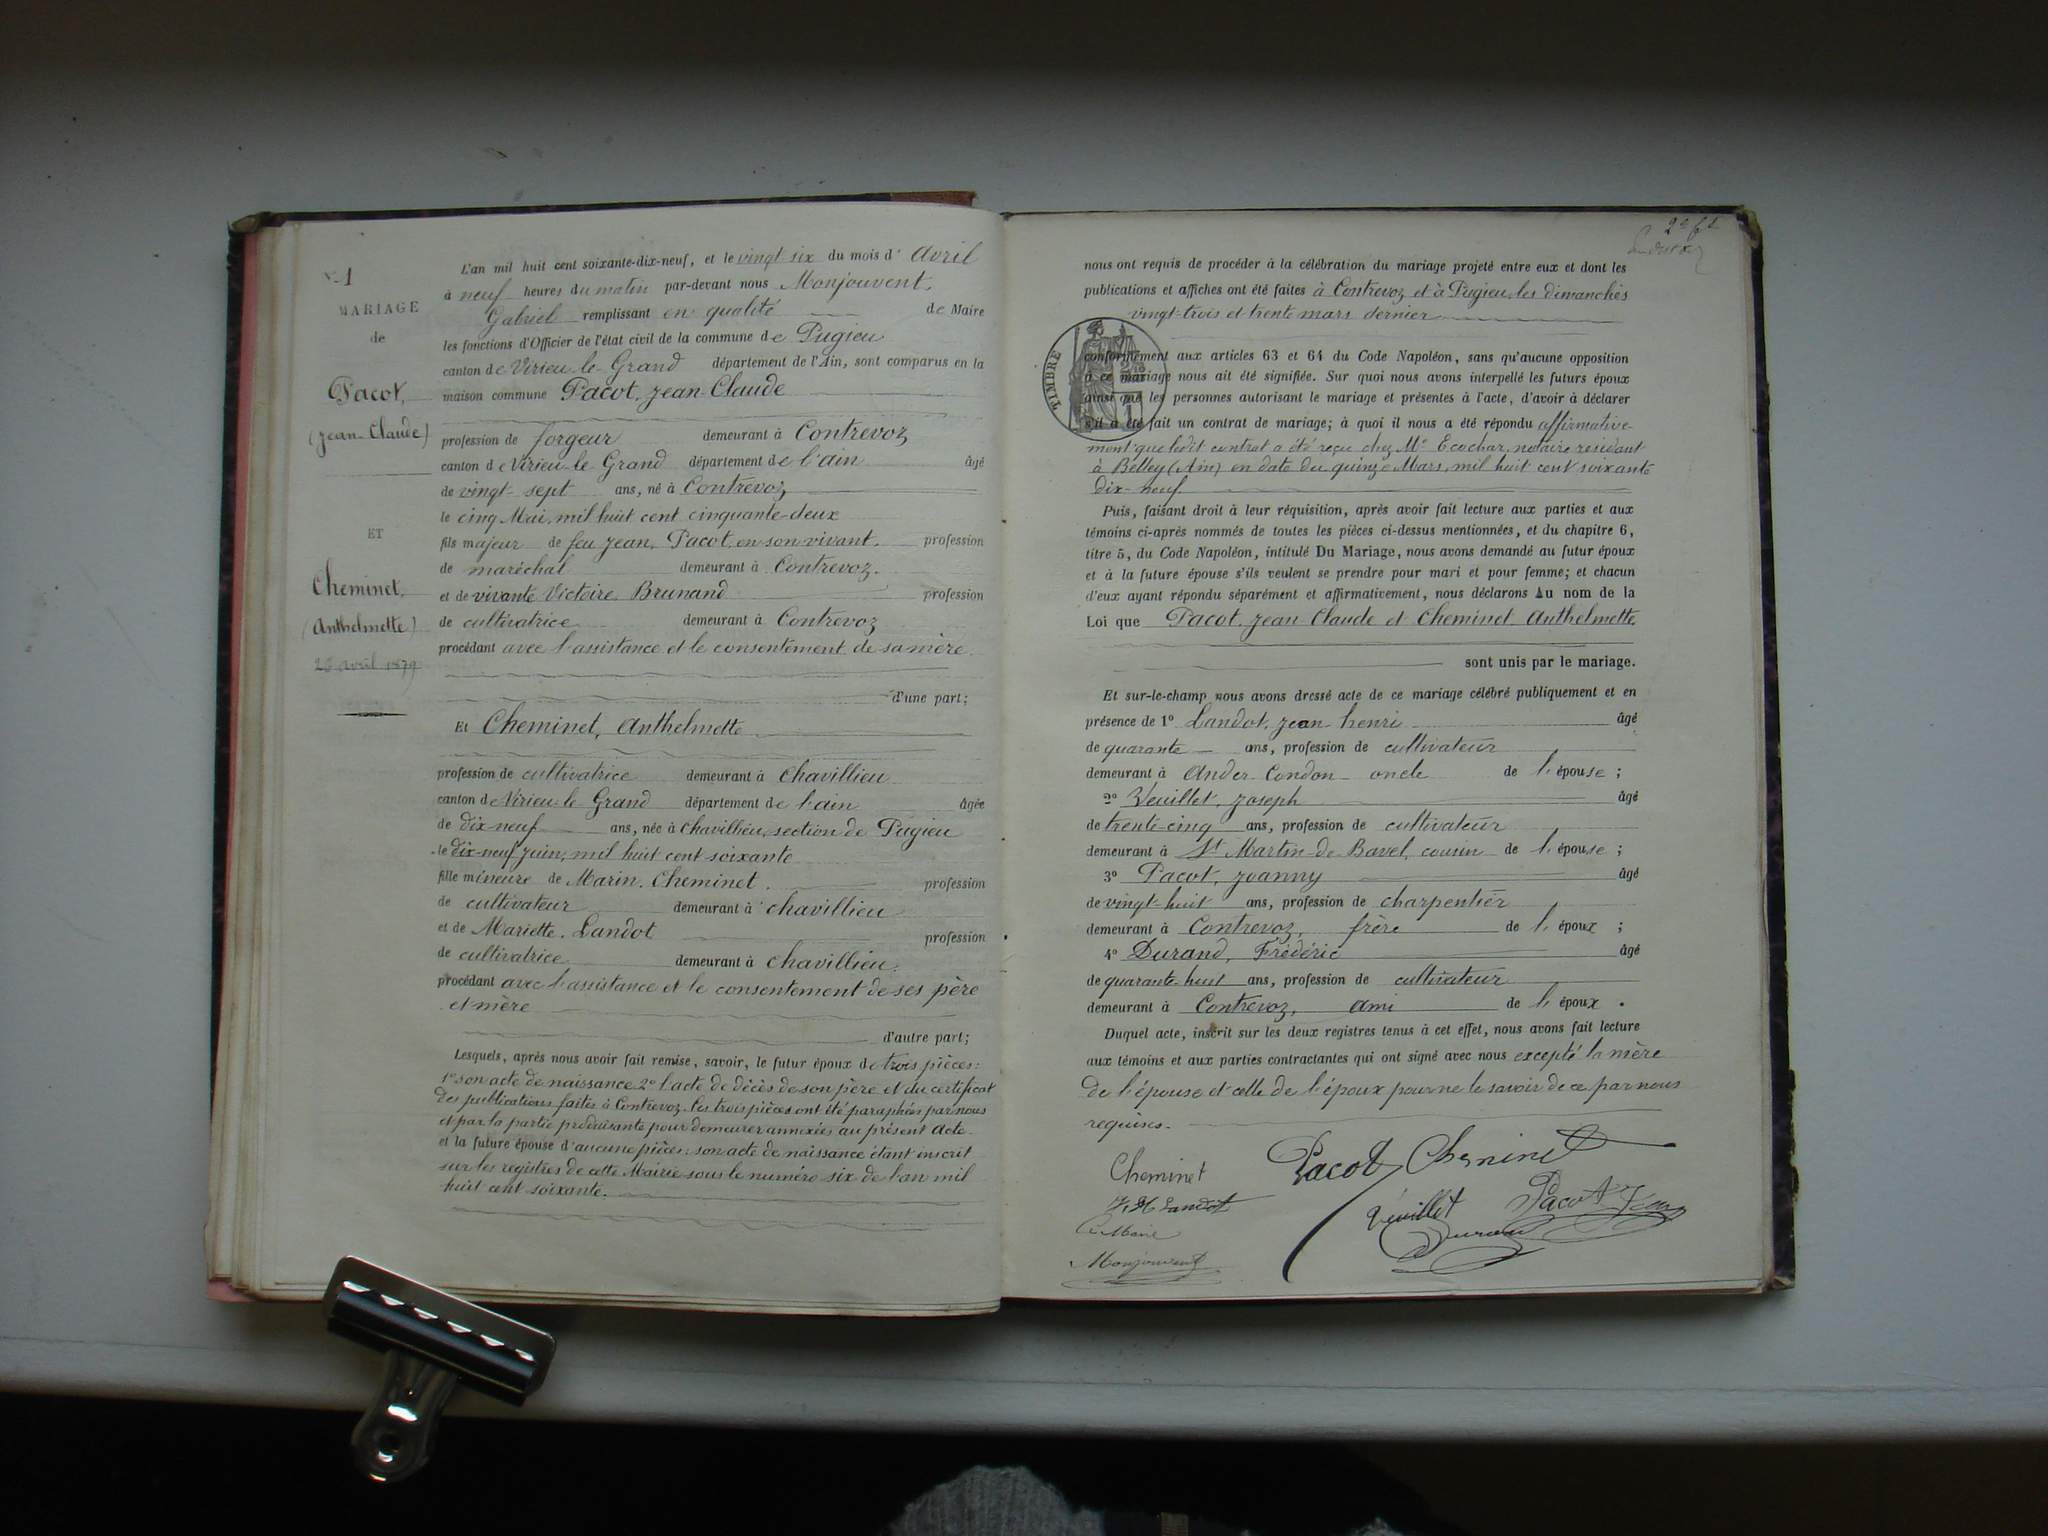 N° 1
MARIAGE
de
Pacot,
(Jean-Claude)
ET
Cheminet,
(Anthelmette)
26 avril 1879
L'an mil huit cent soixante-dix-neuf, et le vingt-six du mois d' Avril
à neuf heures du matin par-devant nous Monjouvent,
Gabriel remplissant en qualité de Maire
les fonctions d'Officier de l'état civil de la commune de Pugieu
canton de Virieu-le-Grand département de l'Ain, sont comparus en la
maison commune Pacot, Jean-Claude
profession de forgeur demeurant à Contrevoz
canton de Virieu-le-Grand département de l'ain âgé
de vingt-sept ans, né à Contrevoz
le cinq Mai, mil huit cent cinquante-deux
fils majeur de feu Jean, Pacot, en son vivant, profession
de maréchal demeurant à Contrevoz.
et de vivante Victoire Brunand profession
de cultivatrice demeurant à Contrevoz
procédant avec l'assistance et le consentement de sa mère.
d'une part;
Et Cheminet, Anthelmette
profession de cultivatrice demeurant à Chavillieu
canton de Virieu-le-Grand département de l'ain âgée
de dix-neuf ans, née à Chavillieu, section de Pugieu
le dix-neuf juin, mil huit cent soixante
fille mineure de Marin, Cheminet. profession
de cultivateur demeurant à Chavillieu
et de Mariette. Landot profession
de cultivatrice demeurant à Chavillieu.
procédant avec l'assistance et le consentement de ses père
et mère
d'autre part;
Lesquels, après nous avoir fait remise, savoir, le futur époux de trois pièces:
1° son acte de naissance 2° l'acte de décès de son père et du certificat
des publications faites à Contrevoz. Ces trois pièces ont été paraphées par nous
et par la partie produisante pour demeurer annexées au présent Acte.
et la future épouse d'aucune pièces: son acte de naissance étant inscrit
sur les registres de cette Mairie sous le numéro six de l'an mil
huit cent soixante.
2e ft
nous ont requis de procéder à la célébration du mariage projeté entre eux et dont les
publications et affiches ont été faites à Contrevoz et à Pugieu, les dimanches
vingt-trois et trente mars dernier
TIMBRE
conformément aux articles 63 et 64 du Code Napoléon, sans qu'aucune opposition
à ce mariage nous ait été signifiée. Sur quoi nous avons interpellé les futurs époux
ainsi que les personnes autorisant le mariage et présentes à l'acte, d'avoir à déclarer
s'il a été fait un contrat de mariage; à quoi il nous a été répondu affirmative-
ment que ledit contrat a été reçu chez Me Ecochar, notaire résidant
à Belley (Ain) en date du quinze Mars, mil huit cent soixante
dix-neuf
Puis, faisant droit à leur réquisition, après avoir fait lecture aux parties et aux
témoins ci-après nommés de toutes les pièces ci-dessus mentionnées, et du chapitre 6,
titre 5, du Code Napoléon, intitulé Du Mariage, nous avons demandé au futur époux
et à la future épouse s'ils veulent se prendre pour mari et pour femme; et chacun
d'eux ayant répondu séparément et affirmativement, nous déclarons Au nom de la
Loi que Pacot, Jean-Claude et Cheminet, Anthelmette
sont unis par le mariage.
Et sur-le-champ nous avons dressé acte de ce mariage célébré publiquement et en
présence de 1° Landot, Jean-henri âgé
de quarante ans, profession de cultivateur
demeurant à Ander-Condon oncle de l'épouse;
2° Veuillet, Joseph âgé
de trente-cinq ans, profession de cultivateur
demeurant à St Martin-de-Bavel, cousin de l'épouse;
3° Pacot, Joanny âgé
de vingt-huit ans, profession de charpentier
demeurant à Contrevoz, frère de l'époux;
4° Durand, Frédéric âgé
de quarante-huit ans, profession de cultivateur
demeurant à Contrevoz, ami de l'époux.
Duquel acte, inscrit sur les deux registres tenus à cet effet, nous avons fait lecture
aux témoins et aux parties contractantes qui ont signé avec nous excepté la mère
de l'épouse et celle de l'époux pour ne le savoir de ce par nous
requises.
Cheminet Pacot Cheminet
J. H Landot Veuillet Pacot
Le Maire Durand
Monjouvent